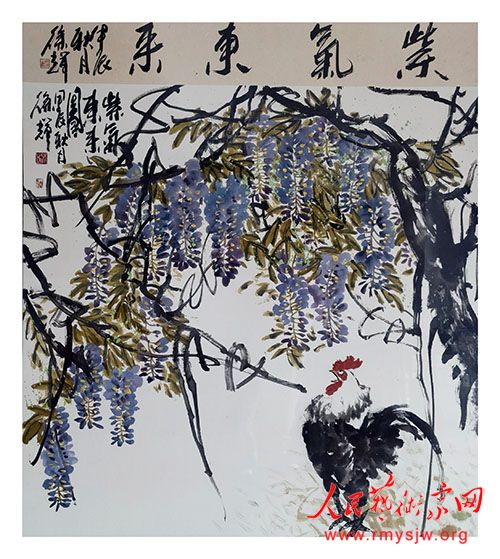 紫氣東来
甲辰
秋月
徐輝
紫氣
東来
甲辰秋月
徐輝
人民藝術家网
www.rmysjw.org